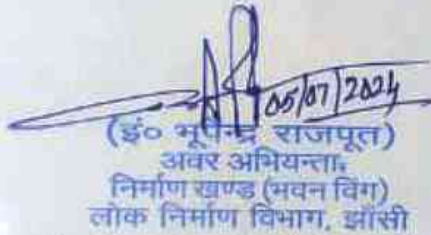 05/07/2024
(इं० भूपेन्द्र राजपूत)
अवर अभियन्ता,
निर्माण खण्ड (भवन विंग)
लोक निर्माण विभाग, झाँसी